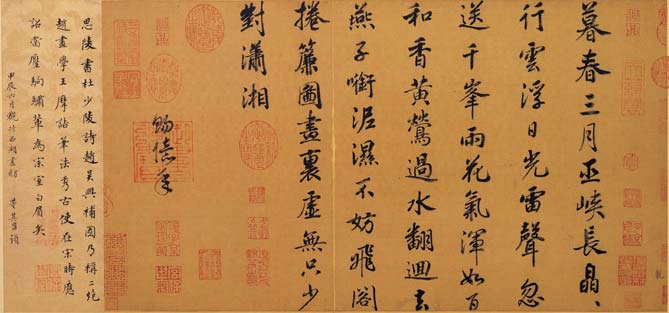 暮春三月巫峽長皛〻
行雲浮日光雷聲忽
送千峯雨花氣渾如百
和香黃鶯過水翻迴去
燕子銜泥濕不妨飛閣
捲簾圖畫裏虛無只少
對瀟湘
賜億年
思陵書杜少陵詩趙吳興補圖乃稱二絕
趙畫學王摩詰筆法秀古使在宗時應
詔當壓駒驌輩為宗室白眉矣
甲辰六月觀於西湖畫舫 董其昌題